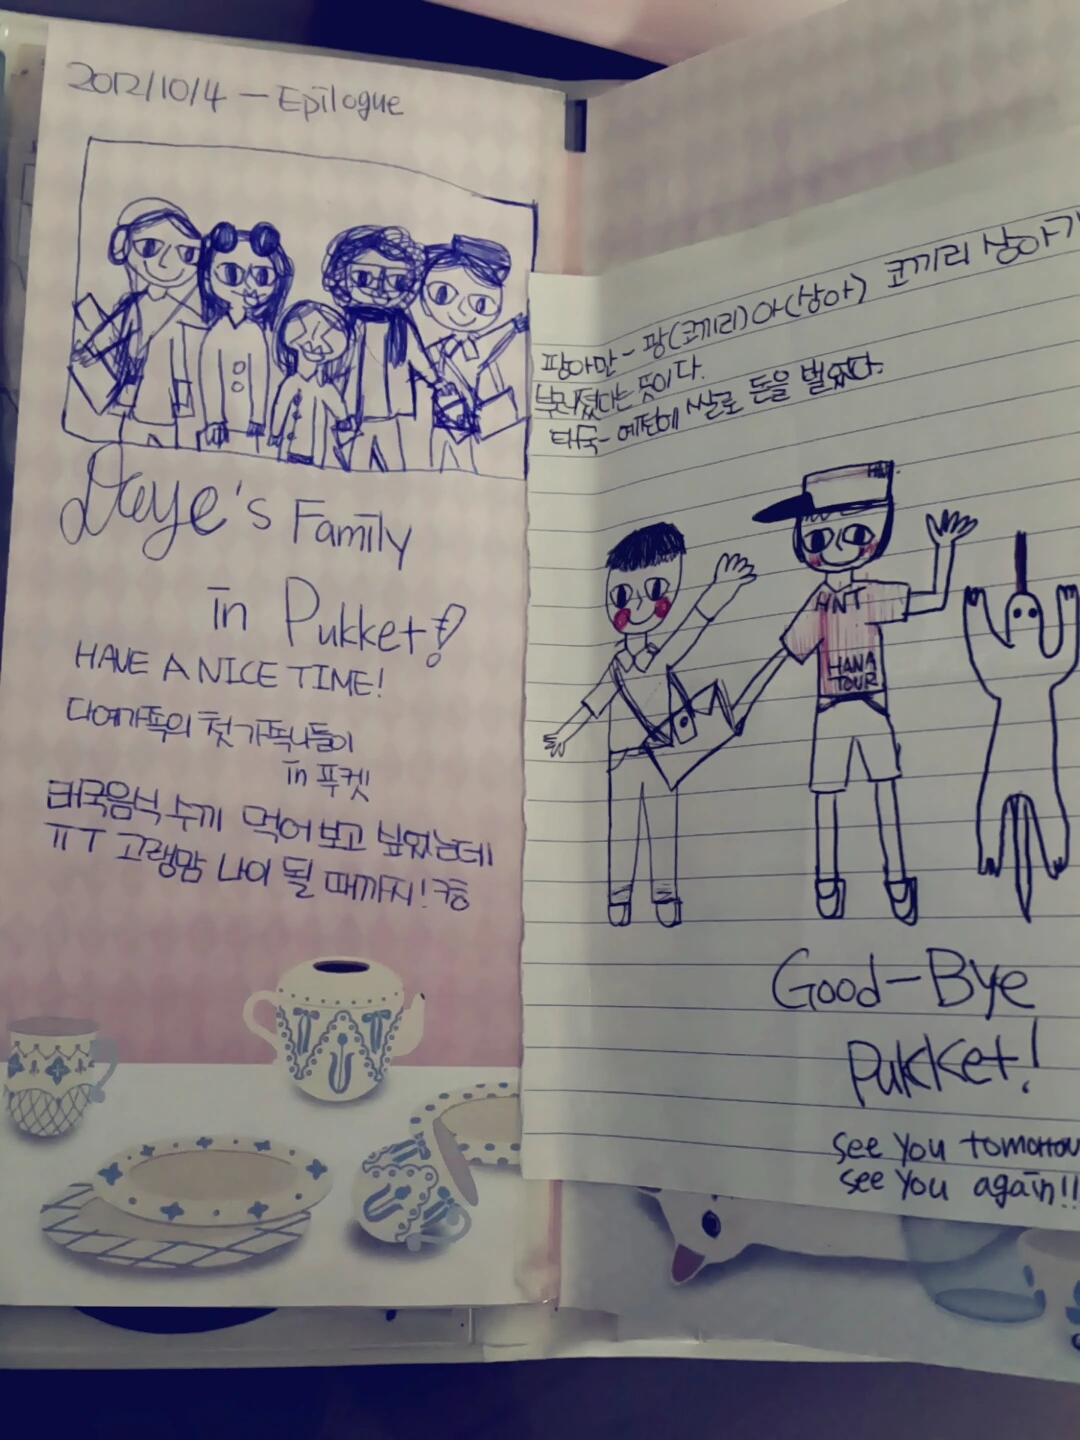 2012/10/4 - Epilogue
Daye's Family
in Pukket!
HAVE A NICE TIME!
다예가족의 첫가족나들이
in 푸켓
태국음식 수끼 먹어보고 싶었는데
ㅠㅜ 고랭맘 나이 될 때까지! 킁
팡아만 - 팡(코끼리)아(상아) 코끼리 상아가
부러졌다는 뜻이다.
태국 - 예전에 쌀로 돈을 벌었다.
HNT
HANA
TOUR
Good-Bye
Pukket!
see you tomorrow
see you again!!